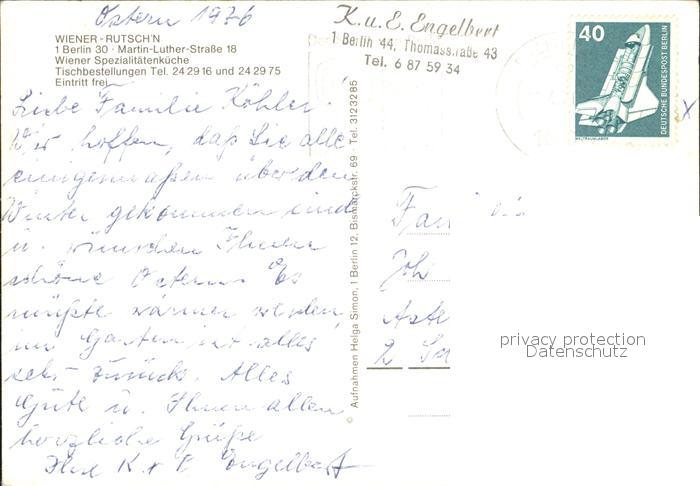 Ostern 1976
WIENER-RUTSCH'N
1 Berlin 30 · Martin-Luther-Straße 18
Wiener Spezialitätenküche
Tischbestellungen Tel. 24 29 16 und 24 29 75
Eintritt frei
Liebe Familie Köhler!
Wir hoffen, daß Sie alle
einigermaßen über den
Winter gekommen sind
u. wünschen Ihnen
schöne Ostern. Es
müßte wärmer werden,
im Garten ist alles
sehr zurück. Alles
Gute u. Ihnen allen
herzliche Grüße
Ihre K. + E. Engelbert
Aufnahmen Helga Simon, 1 Berlin 12, Bismarckstr. 69 Tel. 3123285
K. u. E. Engelbert
1 Berlin 44, Thomasstraße 43
Tel. 6 87 59 34
40
DEUTSCHE BUNDESPOST BERLIN
WELTRAUMLABOR
X
Fam
Joh
2
privacy protection
Datenschutz